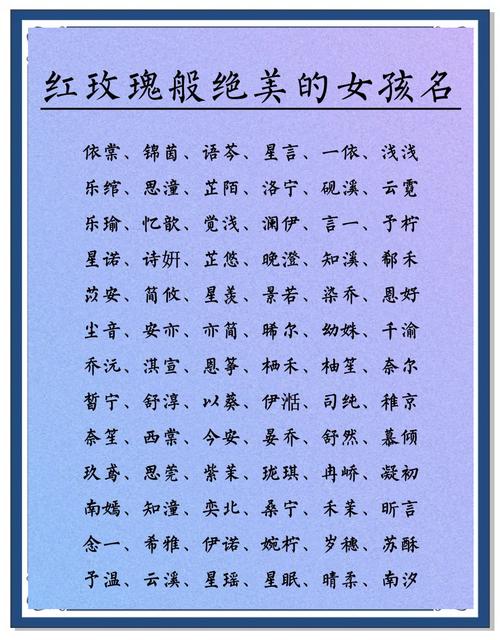 红玫瑰般绝美的女孩名
依棠、锦茵、语芩、星言、一依、浅浅
乐绾、思潼、芷陌、洛宁、砚溪、云霓
乐瑜、忆歆、觉浅、澜伊、言一、予柠
星诺、诗妍、芷悠、晚澄、知溪、郗禾
苡安、简攸、星羡、景若、染乔、恩好
尘音、安亦、亦简、晞尔、幼姝、千渝
乔沅、淇宣、恩筝、栖禾、柚笙、奈尔
皙宁、舒淳、以葵、伊湉、司纯、稚京
奈笙、西棠、今安、晏乔、舒然、慕倾
玖鸢、思莞、紫茉、珑琪、冉峤、凝初
南嫣、知潼、奕北、桑宁、禾茉、昕言
念一、希雅、伊诺、婉柠、岁穗、苏酥
予温、云溪、星瑶、星眠、晴柔、南汐